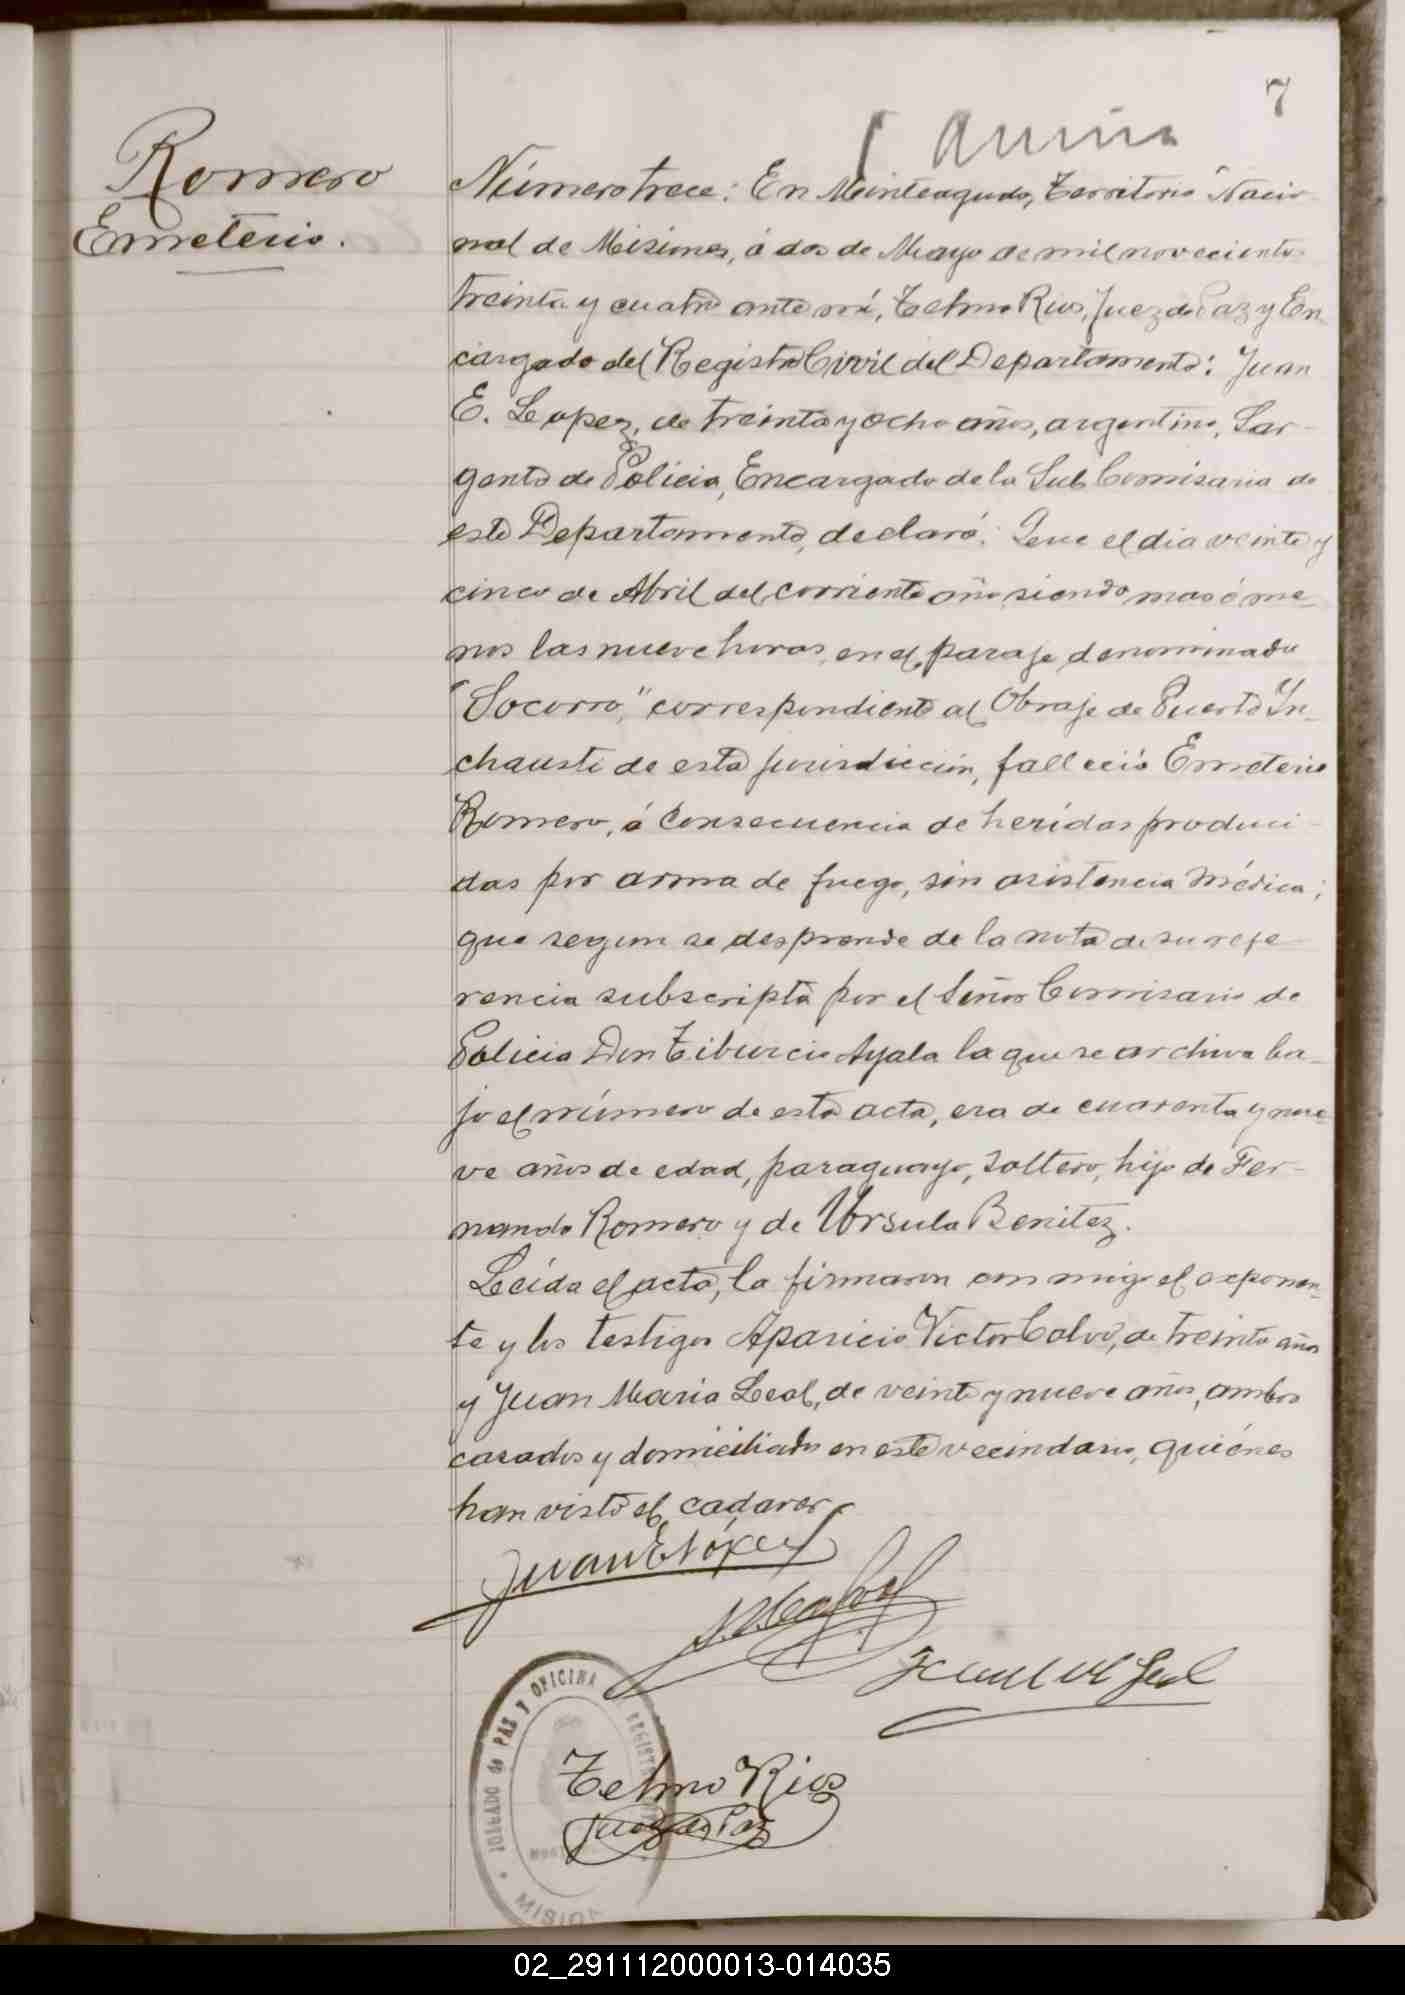 7
Romero
Emeterio.
Número trece: En Monteagudo, Territorio Nacio-
nal de Misiones, á dos de Mayo de mil novecientos
treinta y cuatro ante mí, Telmo Rios, Juez de Paz y En-
cargado del Registro Civil del Departamento: Juan
E. Lopez, de treinta y ocho años, argentino, Sar-
gento de Policia, Encargado de la Sub Comisaria de
este Departamento, declaró: Que el dia veinte y
cinco de Abril del corriente año, siendo mas ó me-
nos las nueve horas, en el paraje denominado
"Socorro," correspondiente al Obraje de Puerto In-
chausti de esta jurisdicción, falleció Emeterio
Romero, á consecuencia de heridas produci-
das por arma de fuego, sin asistencia médica;
que segun se desprende de la nota de su refe-
rencia subscripta por el Señor Comisario de
Policia Don Tiburcio Ayala la que se archiva ba-
jo el número de esta acta, era de cuarenta y nue-
ve años de edad, paraguayo, soltero, hijo de Fer-
nando Romero y de Ursula Benitez.
Leída el acta, la firmaron conmigo el exponen-
te y los testigos Aparicio Victor Calvo, de treinta años
y Juan Maria Leal, de veinte y nueve años, ambos
casados y domiciliados en este vecindario, quiénes
han visto el cadaver.
Juan E López
Juan M Leal
JUZGADO de PAZ Y OFICINA REGISTRO
Telmo Rios
Juez de Paz
02_291112000013-014035